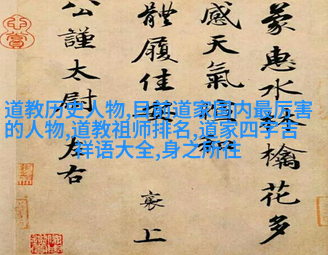 蒙惠水林檎花多
感天氣和
體履佳 襄上
公謹太尉左右
道教历史人物,目前道家国内最厉害
的人物,道教祖师排名,道家四字吉
祥语大全,身之所往